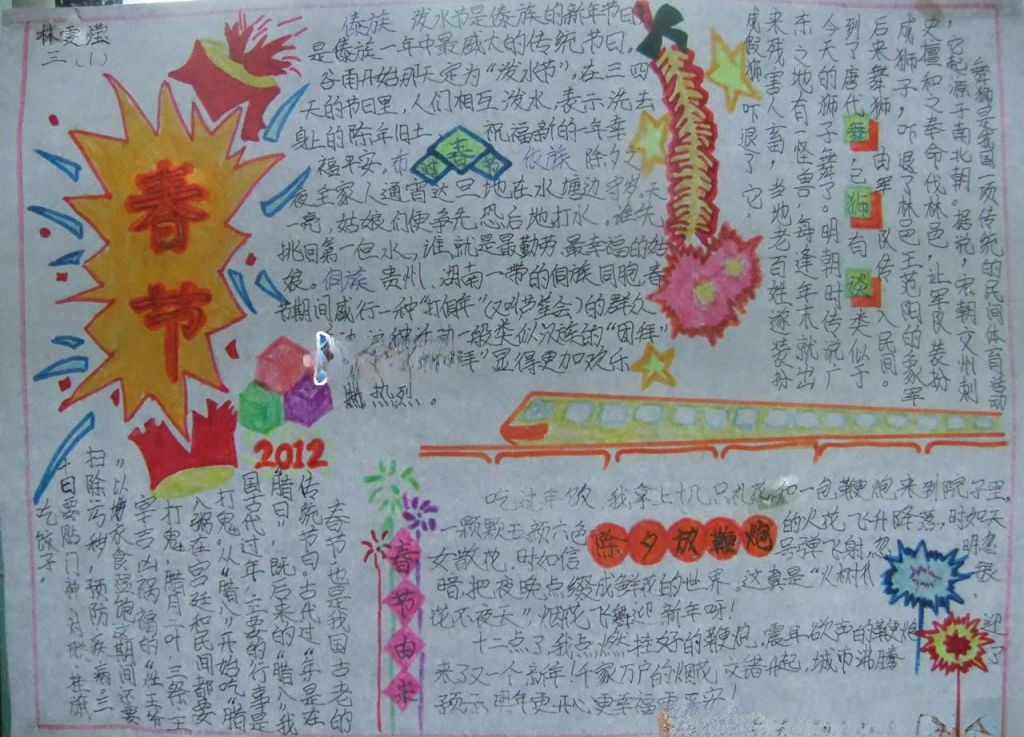 林雯滢
三（1）
春节
傣族 泼水节是傣族的新年节日
是傣族一年中最盛大的传统节日。
谷雨开始那天定为“泼水节”，在三四
天的节日里，人们相互泼水，表示洗去
身上的陈年旧土 祝福新的一年幸
福平安。
春
夜全家人通宵达旦地在水塘边守岁。天
一亮，姑娘们便争先恐后地打水。谁先
挑回第一担水，谁就是最勤劳、最幸福的姑
娘。侗族 贵州、湖南一带的侗族同胞，春
节期间盛行一种“打侗年”（又叫芦笙会）的群众
这种活动一般类似汉族的“团拜”
显得更加欢乐
热烈。
舞狮是我国一项传统的民间体育活动
，它起源于南北朝。据说，宋朝文州刺
史檀和之奉命伐林邑，让军队装扮
成狮子，吓退了林邑王范阳的象军
后来舞狮 由军队传入民间。
到了唐代，已有类似于
今天的狮子舞了。明朝时传说广
东之地有一怪兽，每逢年末就出
来残害人畜，当地老百姓遂装扮
成假狮，吓退了它。
舞狮
2012
春节由来
春节，也是我国古老的
传统节日。古代过“年”是在
“腊日”，既后来的“腊八”我
国古代过年，主要的行事是
打鬼。从“腊八”开始吃“腊
八粥”在宫廷和民间都要
打鬼，腊月二十三祭王
扫除污秽，预防疾病三
十日要贴门神、对联、挂旗
、吃饺子。
吃过年饭，我拿上十几只礼花和一包鞭炮来到院子里，
一颗颗五颜六色的火花，飞升降落，时如天
女散花，时如信号弹飞射，忽明忽
暗，把夜晚点缀成鲜花的世界，这真是“火树银
花不夜天”，烟花飞舞迎新年呀！
除夕放鞭炮
十二点了，我点燃挂好的鞭炮，震耳欲声的鞭炮迎
来了又一个新年！千家万户的烟花交诸升起，城市沸腾了
预示明年更开心，更幸福更平安！